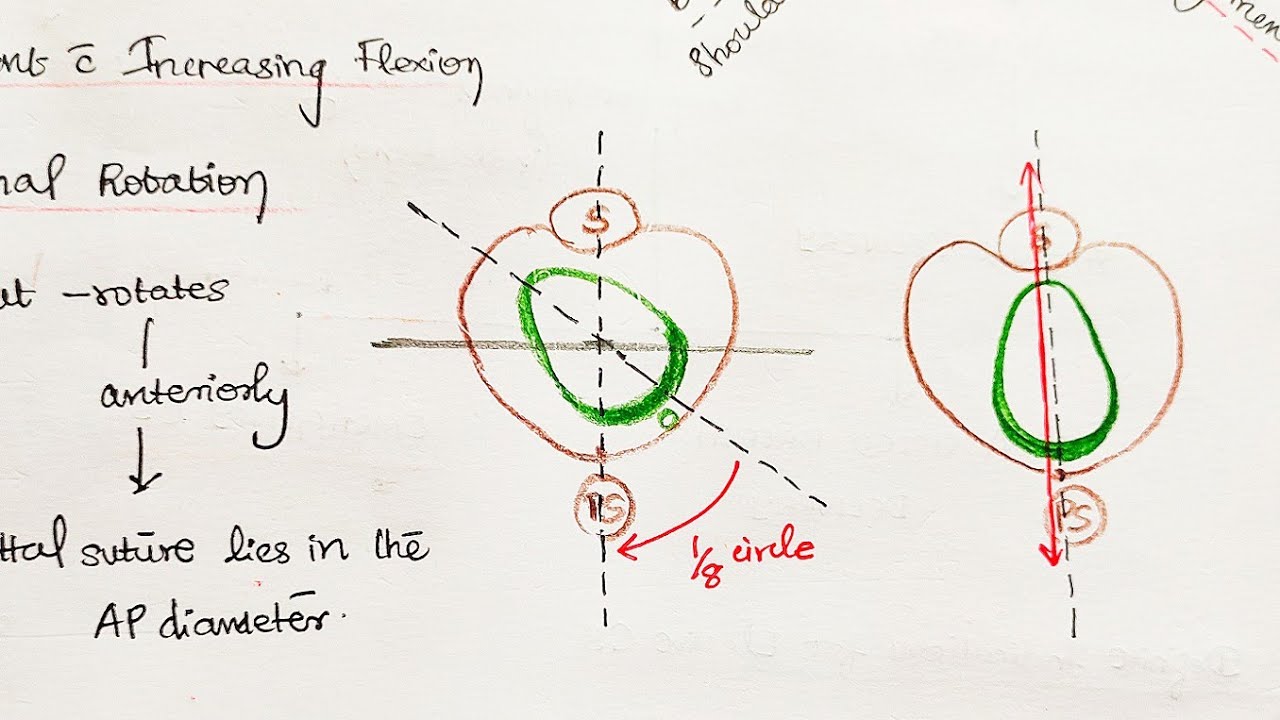 Shoul
men
c̄ Increasing Flexion
nal Rotation
ut - rotates
anteriorly
ttal suture lies in the
AP diameter.
S
PS
1/8 circle
S
PS